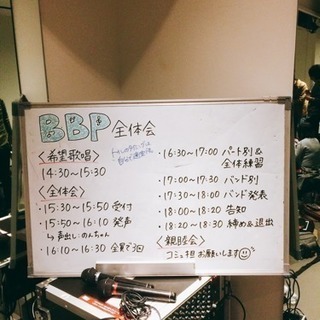 BBP 全体会
<希望歌唱>
14:30~15:30
<全体会>
・15:30~15:50 受付
・15:50~16:10 発声
↳ 声出し:のんちゃん
・16:10~16:30 全員で3回
・16:30~17:00 パート別&
全体練習
・17:00~17:30 バンド別
・17:30~18:00 バンド発表
・18:00~18:20 告知
・18:20~18:30 締め&退出
<親睦会>
コミュ担お願いします